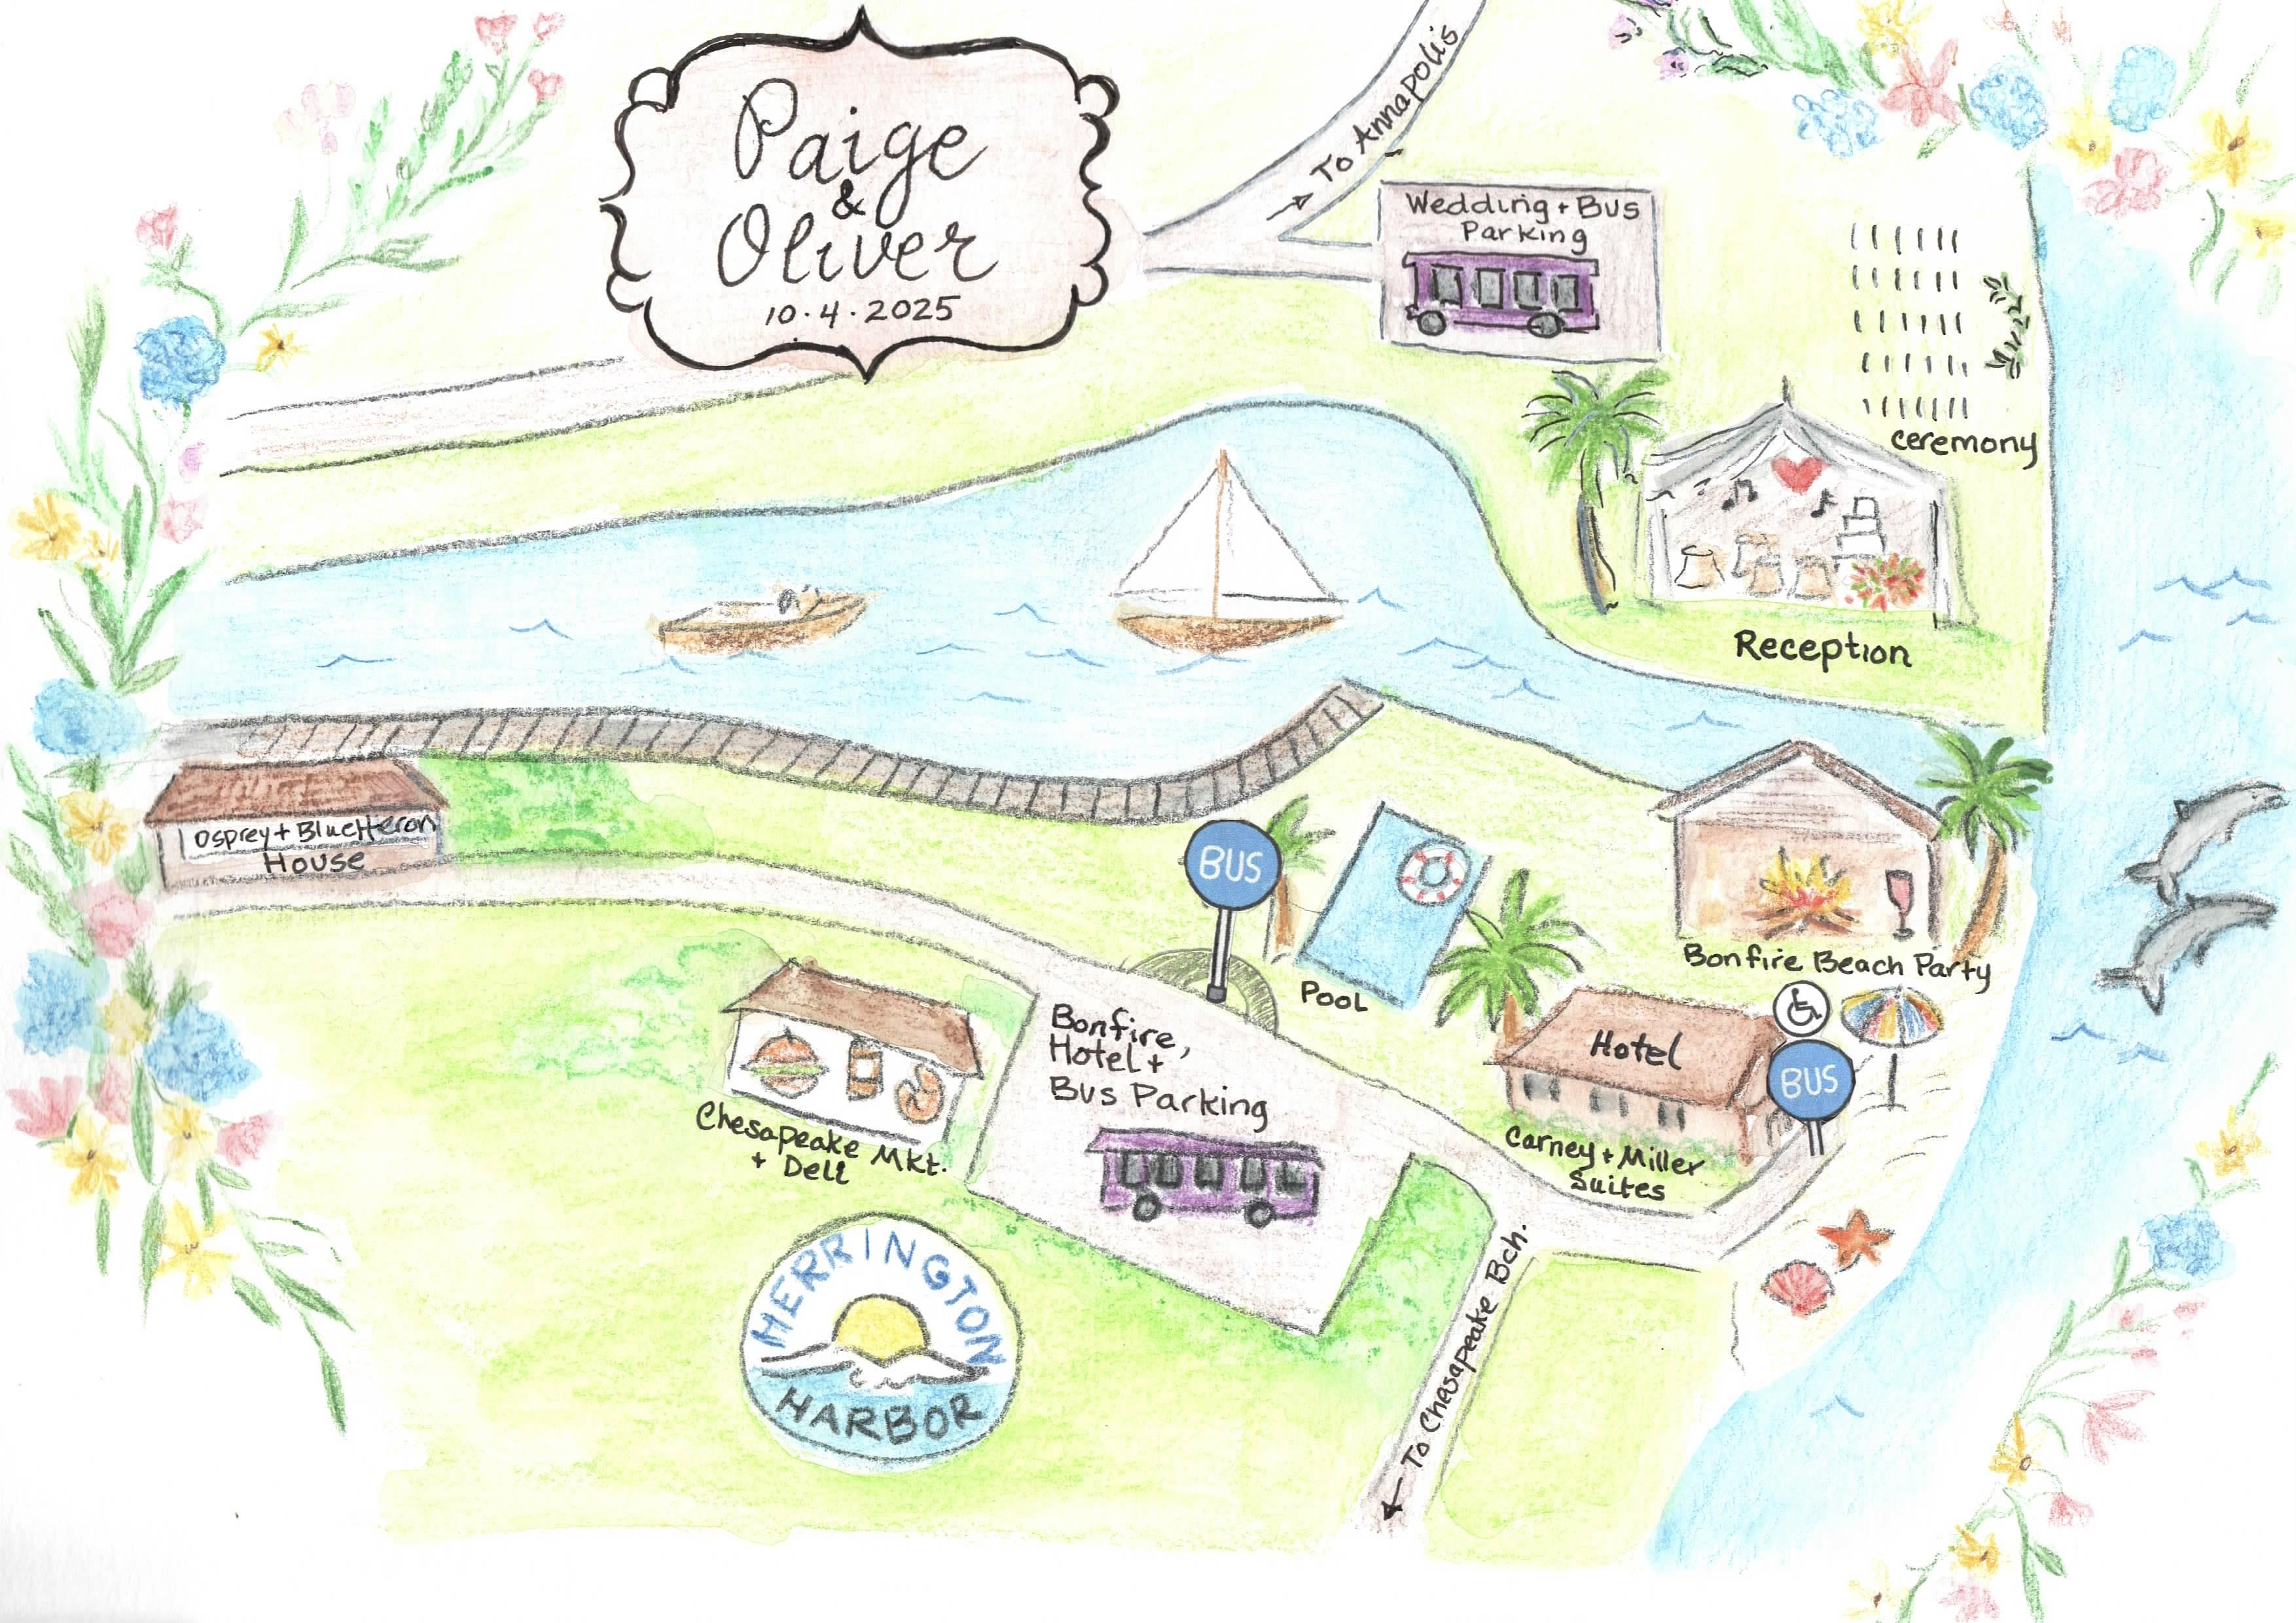 Paige
&
Oliver
10.4.2025
→ To Annapolis
Wedding + Bus
Parking
ceremony
Reception
Osprey + Blue Heron
House
BUS
POOL
Bonfire Beach Party
Hotel
BUS
Carney + Miller
Suites
Bonfire,
Hotel +
Bus Parking
Chesapeake Mkt.
+ Deli
HERRINGTON
HARBOR
← To Chesapeake Bch.